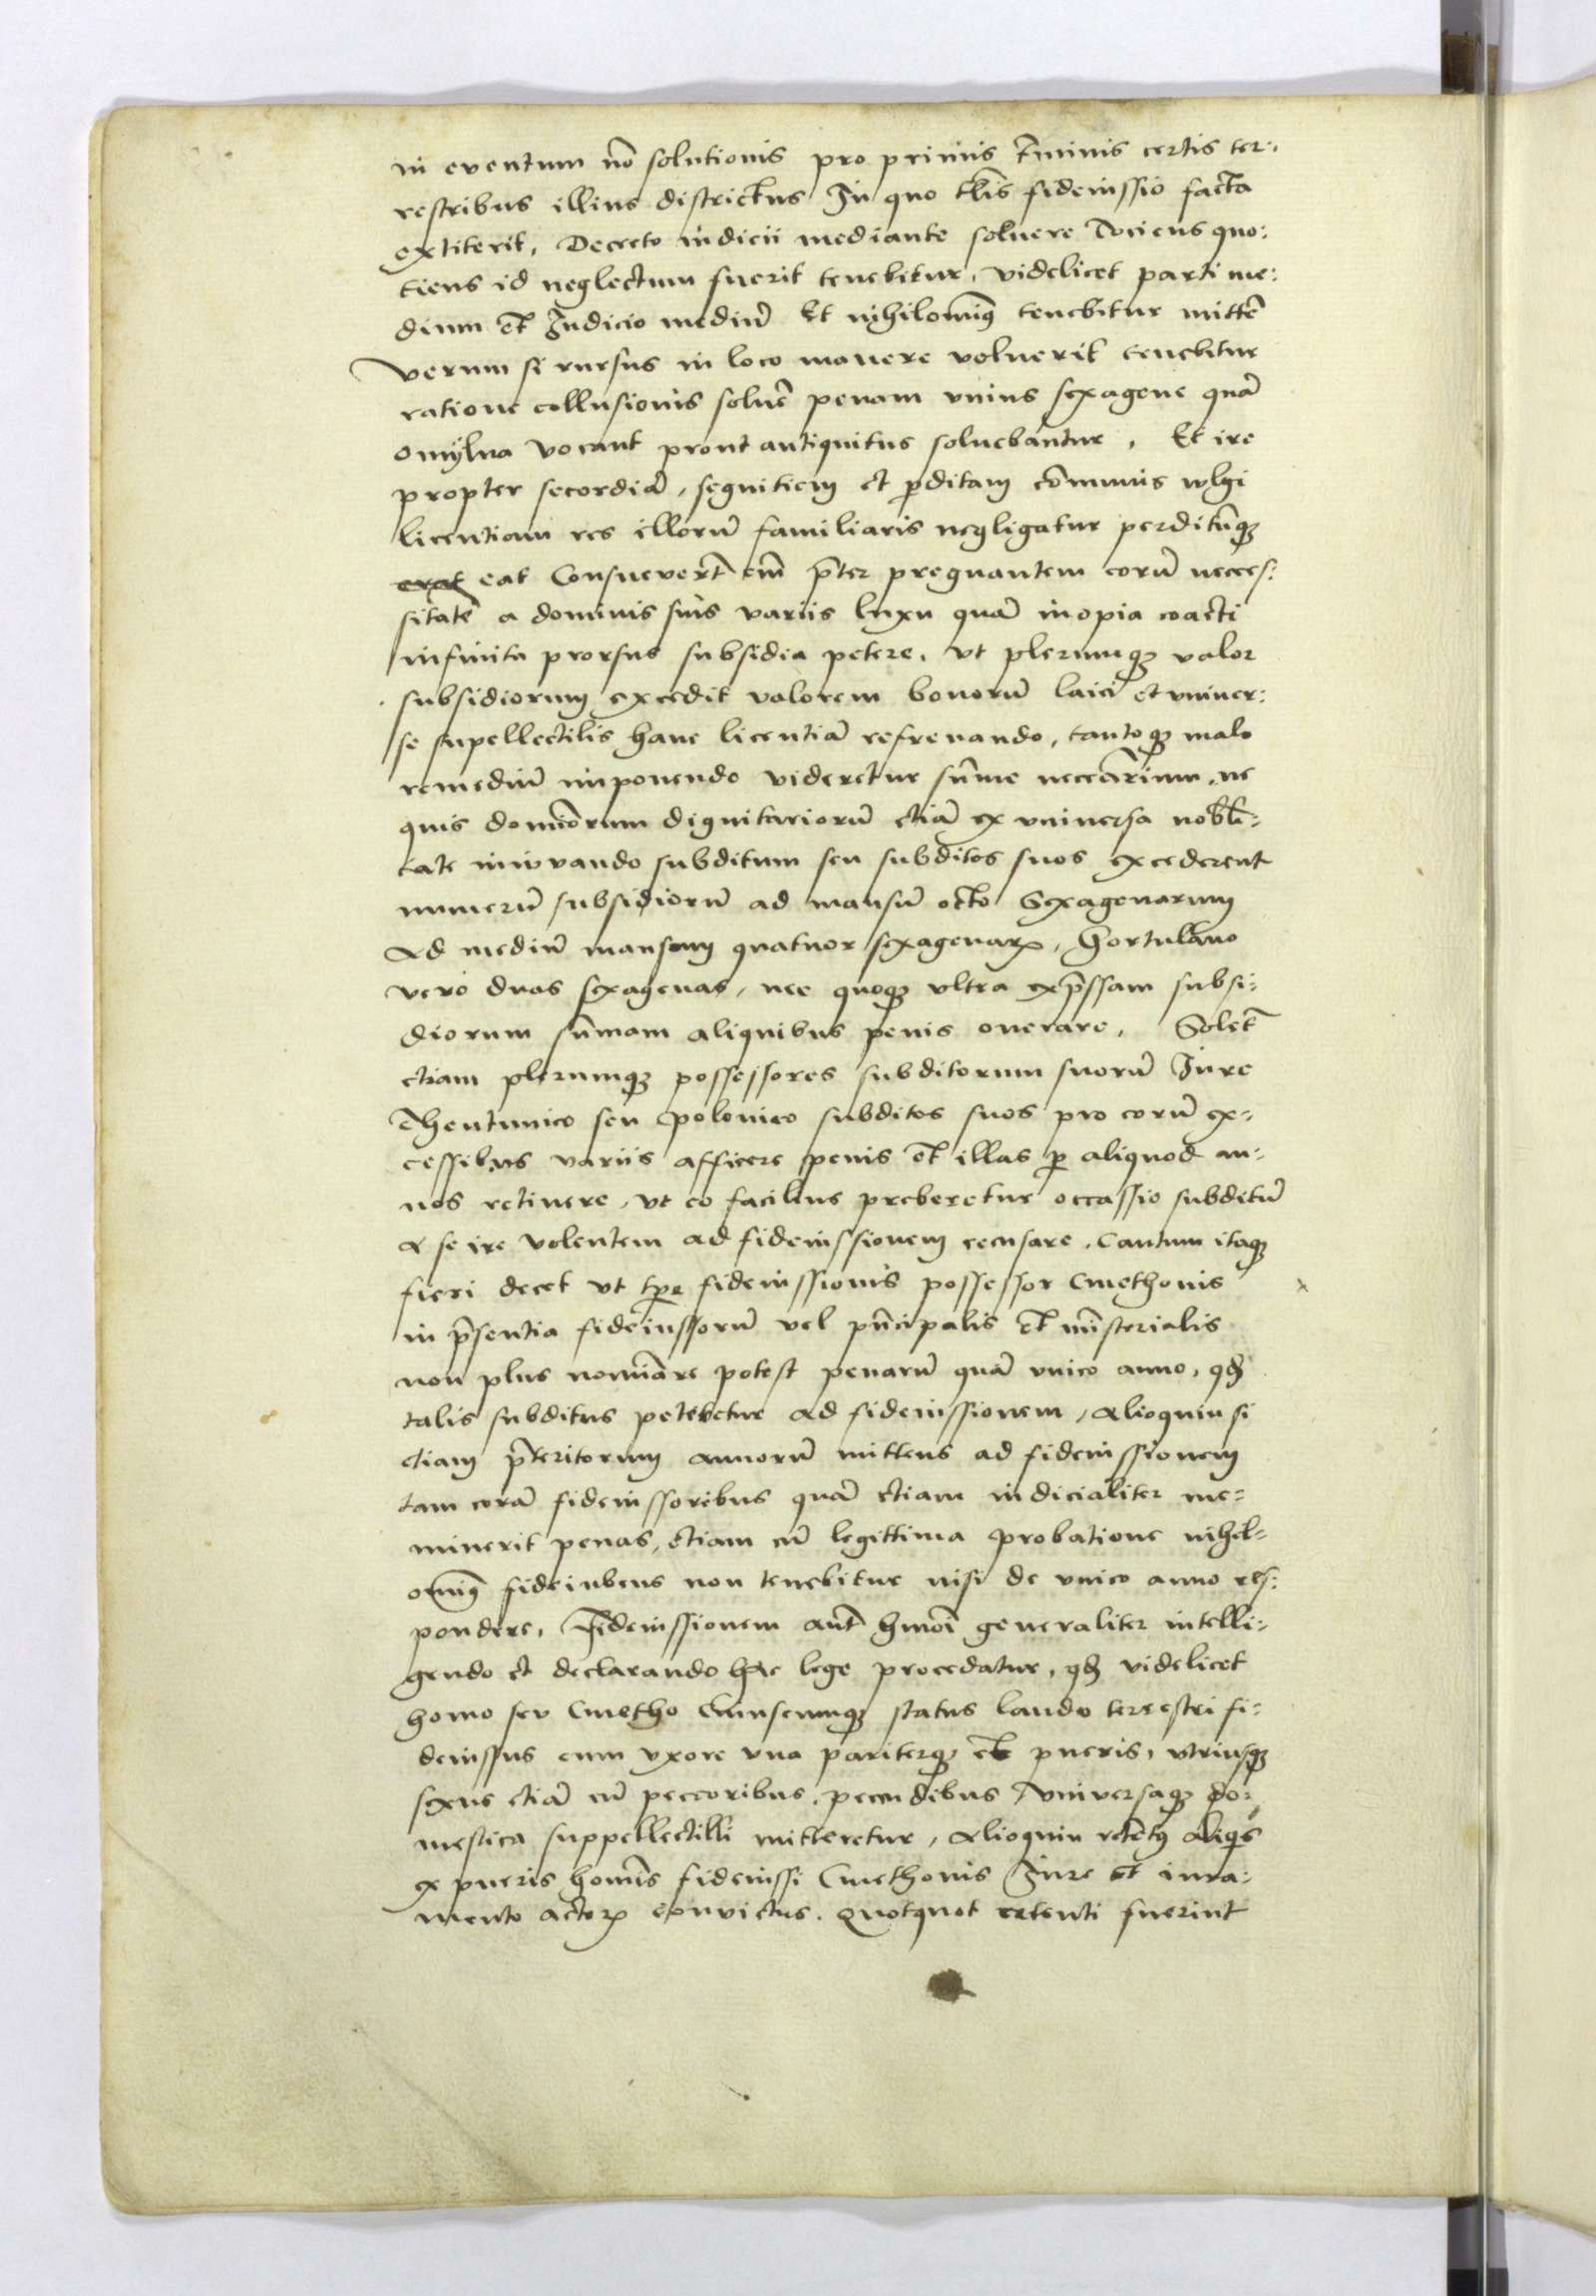 in eventum nō solutionis pro primis t̄minis certis ter:
restribus illius districtus In quo tl̄is fideiussio facta
extiterit, Decreto iudicii mediante soluere Tociens quo:
tiens id neglectum fuerit tenebitur, videlicet parti me:
dium et Iudicio mediū Et nihilominꝰ tenebitur mittē
Verum si rursus in loco manere voluerit tenebitur
ratione collusionis soluē penam vnius sexagene quā
omÿlna vocant prout antiquitus soluebantur, Et ire
propter secordiā, segnitiem et ꝑditam cōmunis vulgi
licentiam res illorū familiaris negligatur perditūqꝫ
erat eat Consueverūt em̄ p̄ter pregnantem eorū necces:
sitatē a dominis suis variis luxu quā inopia coacti
infinita prorsus subsidia petere, vt plerumqꝫ valor
subsidiorum excedit valorem bonorū laici et vniver:
se supellectilis hanc licentiā refrenando, tantoqꝫ malo
remediū imponendo videretur sūme neccārium, ne
quis dominorum dignitariorū etiā ex vniuersa nobli:
tate iuvando subditum seu subditos suos excederent
numerū subsidiorū ad mansū octo Sexagenarum
Ad mediū mansum quatuor sexagenarꝝ, Hortulano
vero duas sexagenas, nec quoqꝫ vltra exp̄ssam subsi:
diorum sūmam aliquibus penis onerare, Solet
etiam plerumqꝫ possessores subditorum suorū Iure
Theutunico seu polonico subditos suos pro eorū ex:
cessibus variis afficere penis et illas ꝑ aliquod an:
nos retinere, vt eo facilius preberetur occassio subditū
a se ire volentem ad fideiussionem recusare, Cautum itaqꝫ
fieri decet vt tp̄e fideiussionis possessor Cmethonis
in p̄sentia fideiussorū vel pn̄cipalis et mīsterialis
non plus nomīare potest penarū quā vnico anno, qđ
talis subditus peteretur ad fideiussionem, Alioquin si
etiam p̄teritorum annorū mittens ad fideiussionem
tam corā fideiussoribus quā etiam iudicialiter me:
minerit penas, etiam cū legittima probatione nihil:
ominꝰ fideiubens non tenebitur nisi de vnico anno res:
pondere, Fideiussionem aūt hmōi generaliter intelli:
gendo et declarando hac lege procedatur, qđ videlicet
homo seu Cmetho Cuiuscumqꝫ status laudo terrestri fi:
deiussus cum vxore vna pariterqꝫ et pueris, vtriusqꝫ
sexus etiā cū peccoribus, pecudibus Vniversaqꝫ do:
mestica suppellectilli mitteretur, Alioquin retētꝰ aliqͥs
ex pueris homīs fideiussi Cmethonis Iure et iura:
mento actorꝝ convictus. Quotquot retenti fuerint